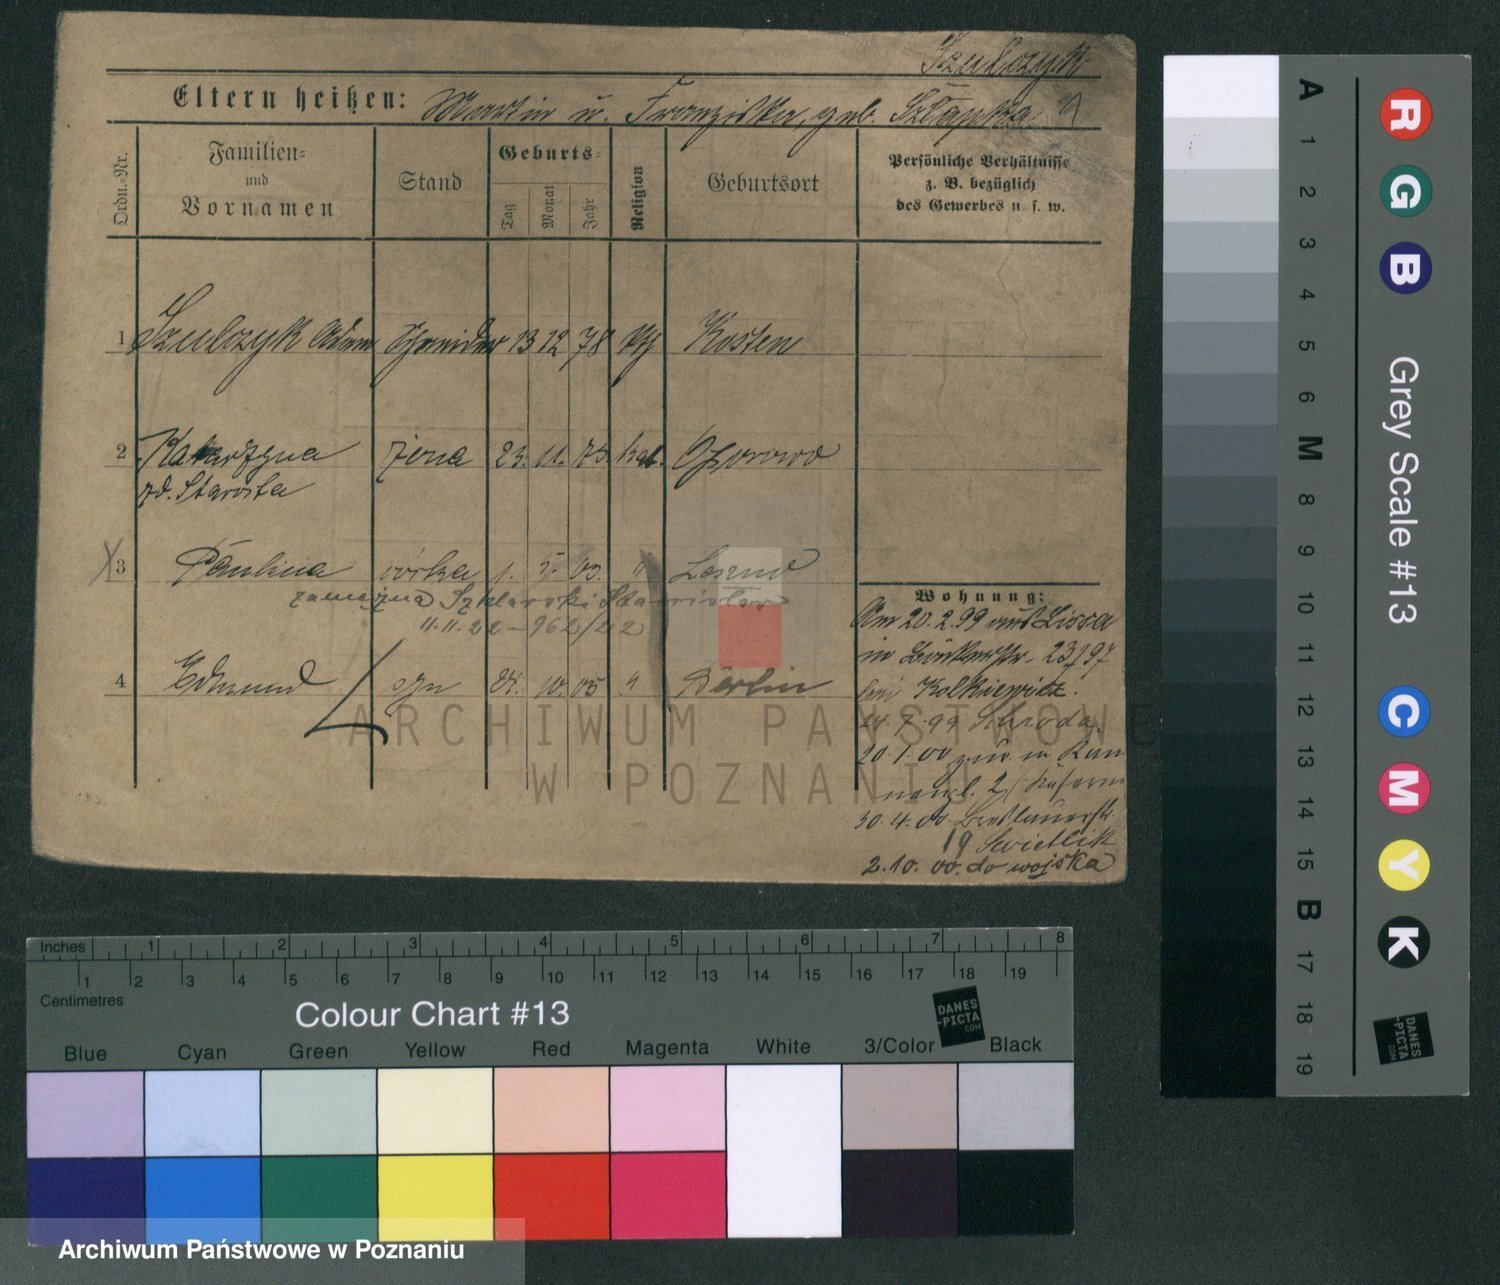 Szulczyk
Eltern heißen: Martin u. Franziska, geb. Szlapka
Ordn.-Nr.
Familien- und Vornamen
Stand
Geburts-
Tag
Monat
Jahr
Religion
Geburtsort
Persönliche Verhältnisse
z. B. bezüglich
des Gewerbes u. s. w.
1 Szulczyk Adam Schneider 13 12 78 Kosten
2 Katarzyna żona 23. 11. 75. kat. Ozorowo
zd. Starosta
3 Paulina córka 1. 5. 03. "
zamężna Szklarski Stanisław
11.11.22 – 962/22
4 Edmund syn 24. 10. 05 " Berlin
Wohnung:
Am 20.2.99 aus Lissa
in 23/97
bei Kolkiewicz.
24.7.99 Schroda
20.1.00 zur. in
2/
30.4.00 Breslauerstr.
19 Swietlik
2.10.00. do wojska
ARCHIWUM PAŃSTWOWE
W POZNANIU
A 1 2 3 4 5 6 M 8 9 10 11 12 13 14 15 B 17 18 19
R G B
Grey Scale #13
C M Y K
DANES
-PICTA
.COM
Inches 1 2 3 4 5 6 7 8
1 2 3 4 5 6 7 8 9 10 11 12 13 14 15 16 17 18 19
Centimetres
Colour Chart #13
DANES
-PICTA
.COM
Blue Cyan Green Yellow Red Magenta White 3/Color Black
Archiwum Państwowe w Poznaniu